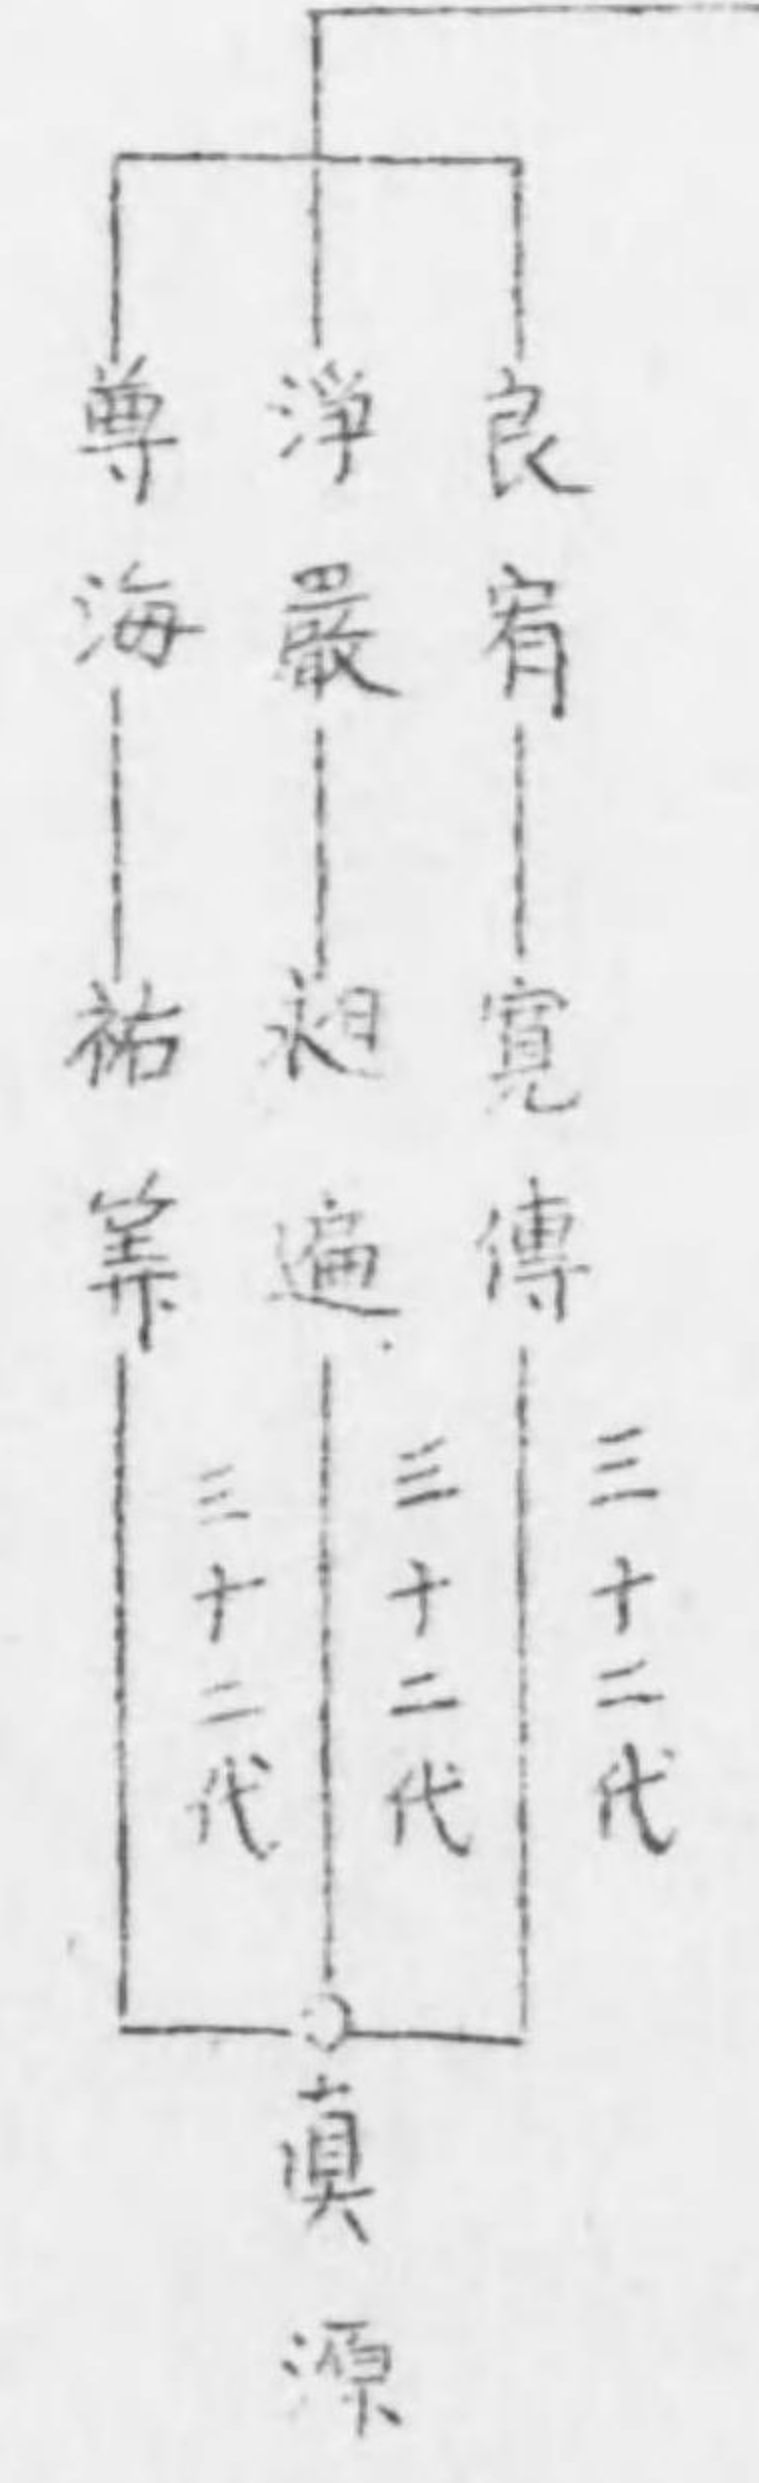 良宥
寛傳
三十二代
淨嚴
昶遍
三十二代
尊海
祐筭
三十二代
真源